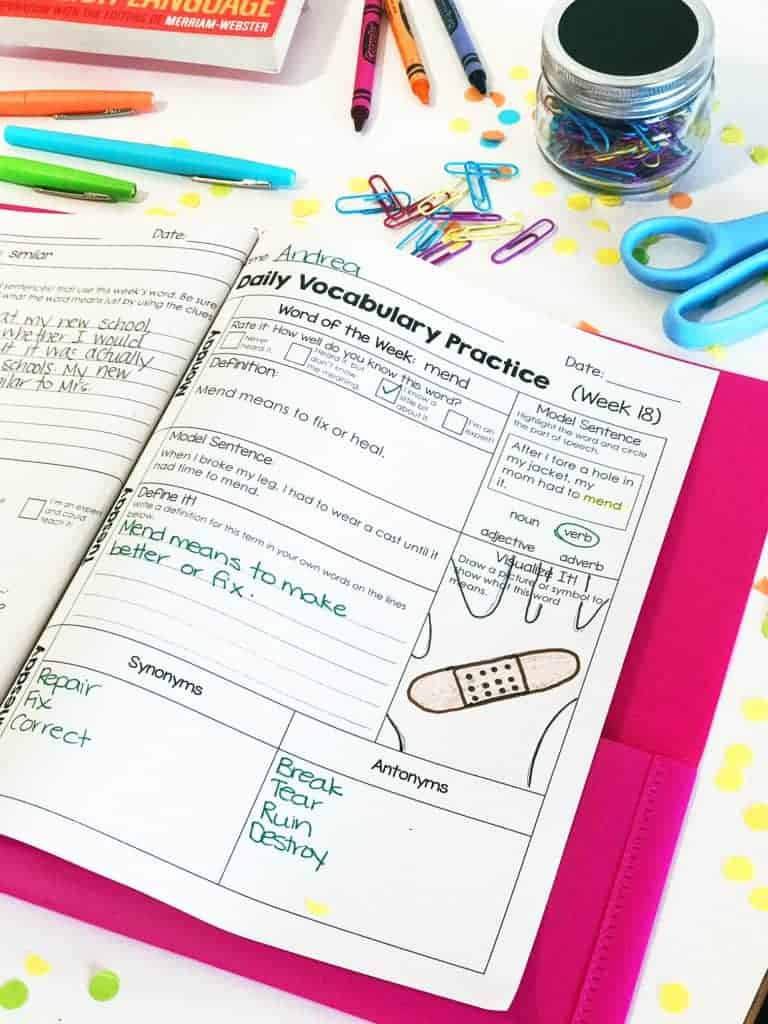 LANGUAGE
MERRIAM-WEBSTER
Date:
similar
sentences) that use this week's word. Be sure
what the word means just by using the clues
at my new school
whether I would
it was actually
schools. My new
Mrs.
I'm an expert
and could
teach it.
Andrea
Date:
Daily Vocabulary Practice
(Week 18)
Monday
Word of the Week: mend
Rate it: How well do you know this word?
Never
heard it.
Heard it, but
don't know
the meaning.
I know a
little bit
about it.
I'm an
expert!
Definition:
Mend means to fix or heal.
Model Sentence
Highlight the word and circle
the part of speech.
After I tore a hole in
my jacket, my
mom had to mend
it.
noun
verb
adjective
adverb
Tuesday
Model Sentence:
When I broke my leg, I had to wear a cast until it
had time to mend.
Define It!
Write a definition for this term in your own words on the lines
below.
Mend means to make
better or fix.
Visualize It!
Draw a picture or symbol to
show what this word
means.
Synonyms
Repair
Fix
Correct
Antonyms
Break
Tear
Ruin
Destroy